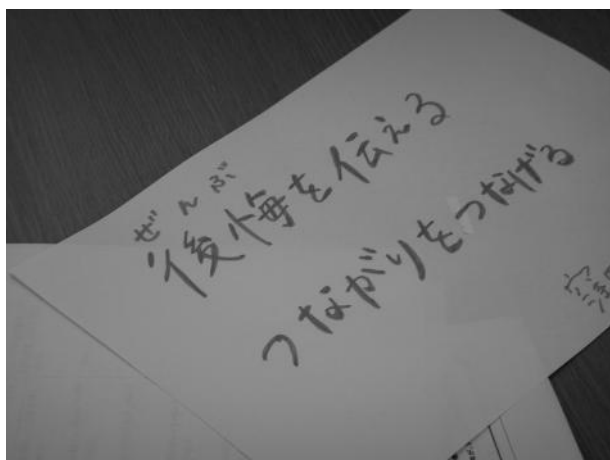 ぜんぶ
後悔を伝える
つながりをつなげる